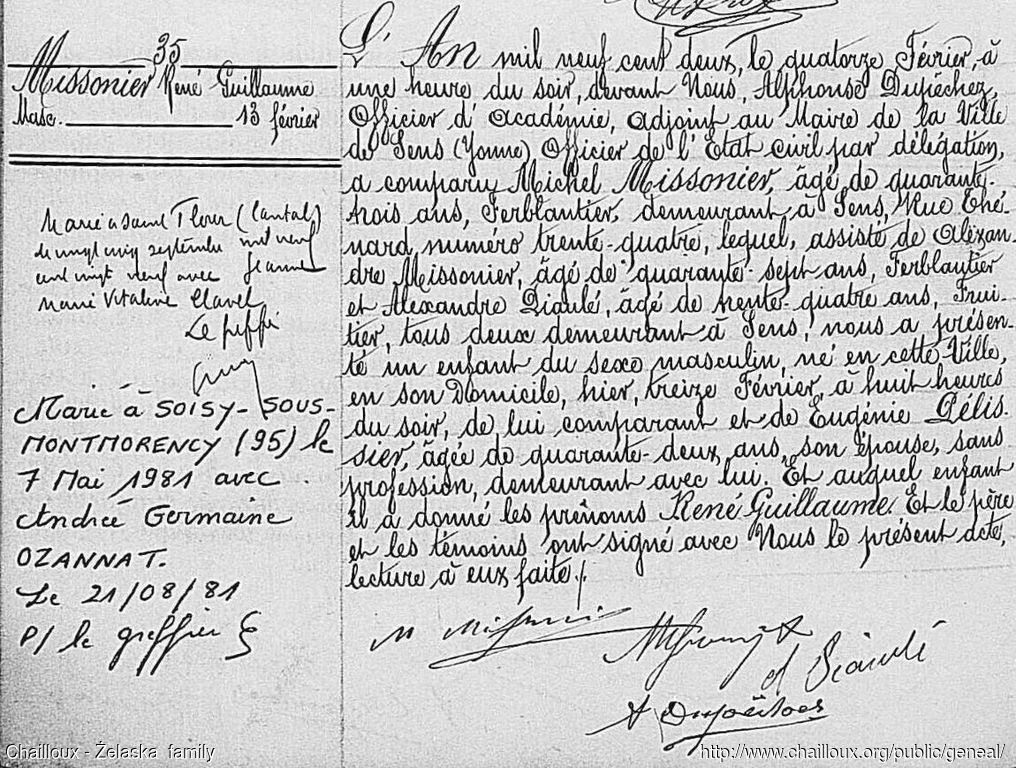 35
Missonier René Guillaume
Masc. 13 février
Marié à Saint Flour (Cantal)
le vingt cinq septembre mil neuf
cent vingt neuf avec Jeanne
Marie Vitaline Clavel
Le greffier
Marié à SOISY-SOUS-
MONTMORENCY (95) le
7 Mai 1981 avec
Andrée Germaine
OZANNAT.
Le 21/08/81
P/ le greffier
L'An mil neuf cent deux, le quatorze Février, à
une heure du soir, devant Nous, Alphonse Dupêchez,
Officier d'Académie, adjoint au Maire de la Ville
de Sens (Yonne) Officier de l'État civil par délégation,
a comparu Michel Missonier, âgé de quarante-
trois ans, Ferblantier, demeurant à Sens, Rue Thé-
nard numéro trente-quatre, lequel, assisté de Alexan-
dre Missonier, âgé de quarante-sept ans, Ferblantier
et Alexandre Piaulé, âgé de trente-quatre ans, Frui-
tier, tous deux demeurant à Sens, nous a présen-
té un enfant du sexe masculin, né en cette Ville,
en son Domicile, hier, treize Février, à huit heures
du soir, de lui comparant et de Eugénie Pélis-
sier, âgée de quarante-deux ans, son épouse, sans
profession, demeurant avec lui. Et auquel enfant
il a donné les prénoms René Guillaume. Et le père
et les témoins ont signé avec Nous le présent acte,
lecture à eux faite./.
Chailloux - Želaska family
http://www.chailloux.org/public/geneal/